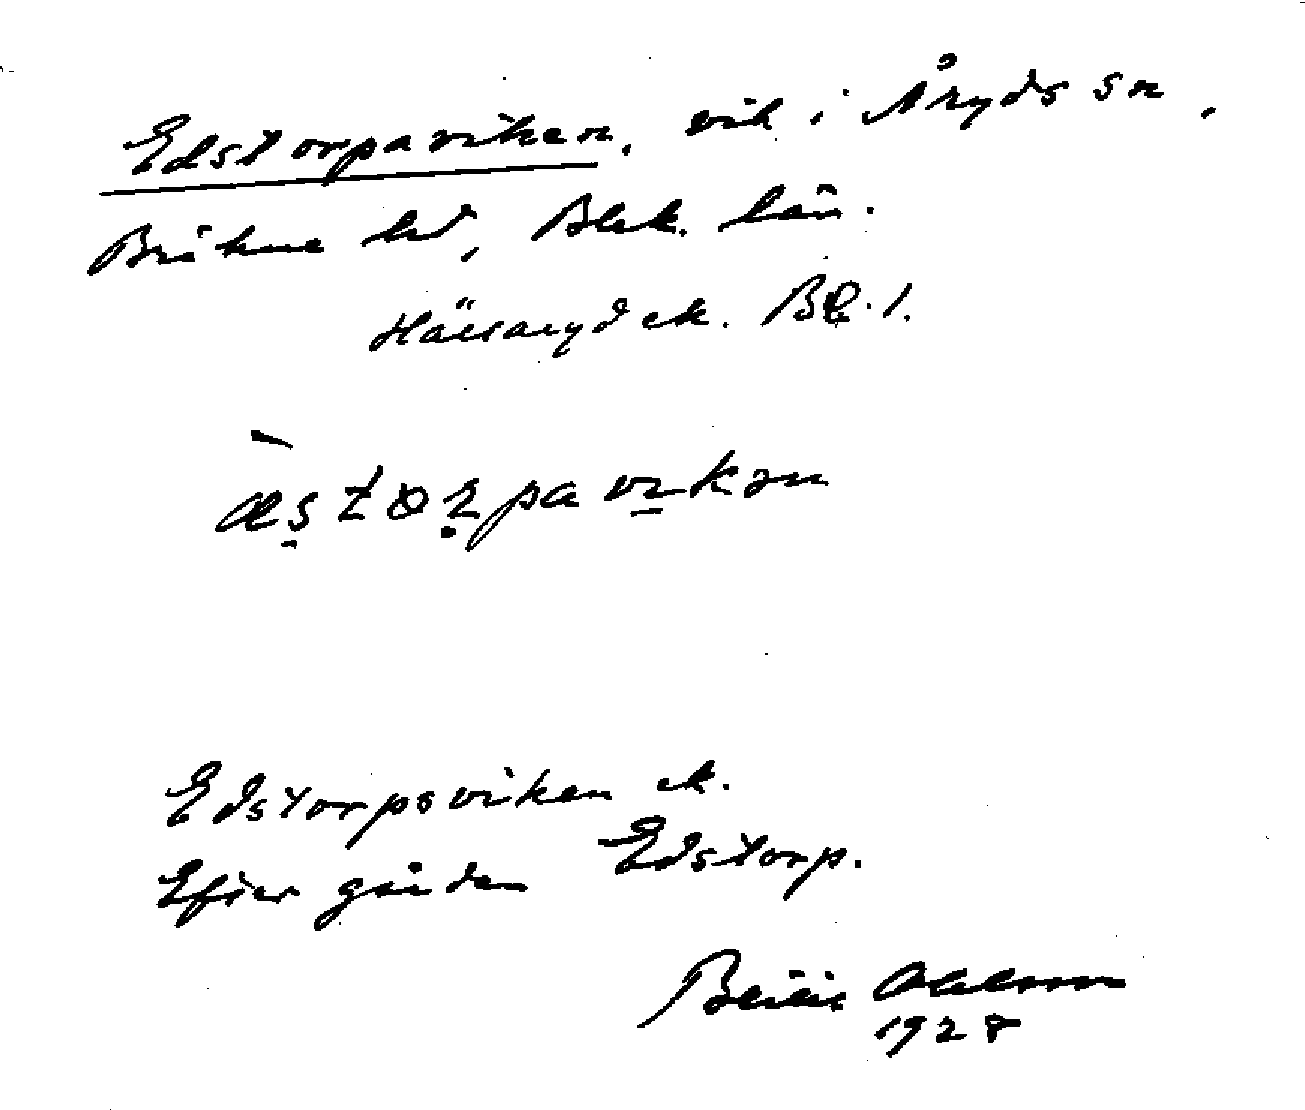 Edstorpaviken, vik i Åryds sn,
Bräkne hd, Blek. län.
Hällaryd ek. Bl. 1.
æstorpavikən
Edstorpsviken ek.
Efter gården Edstorp.
Ohlsson
1928